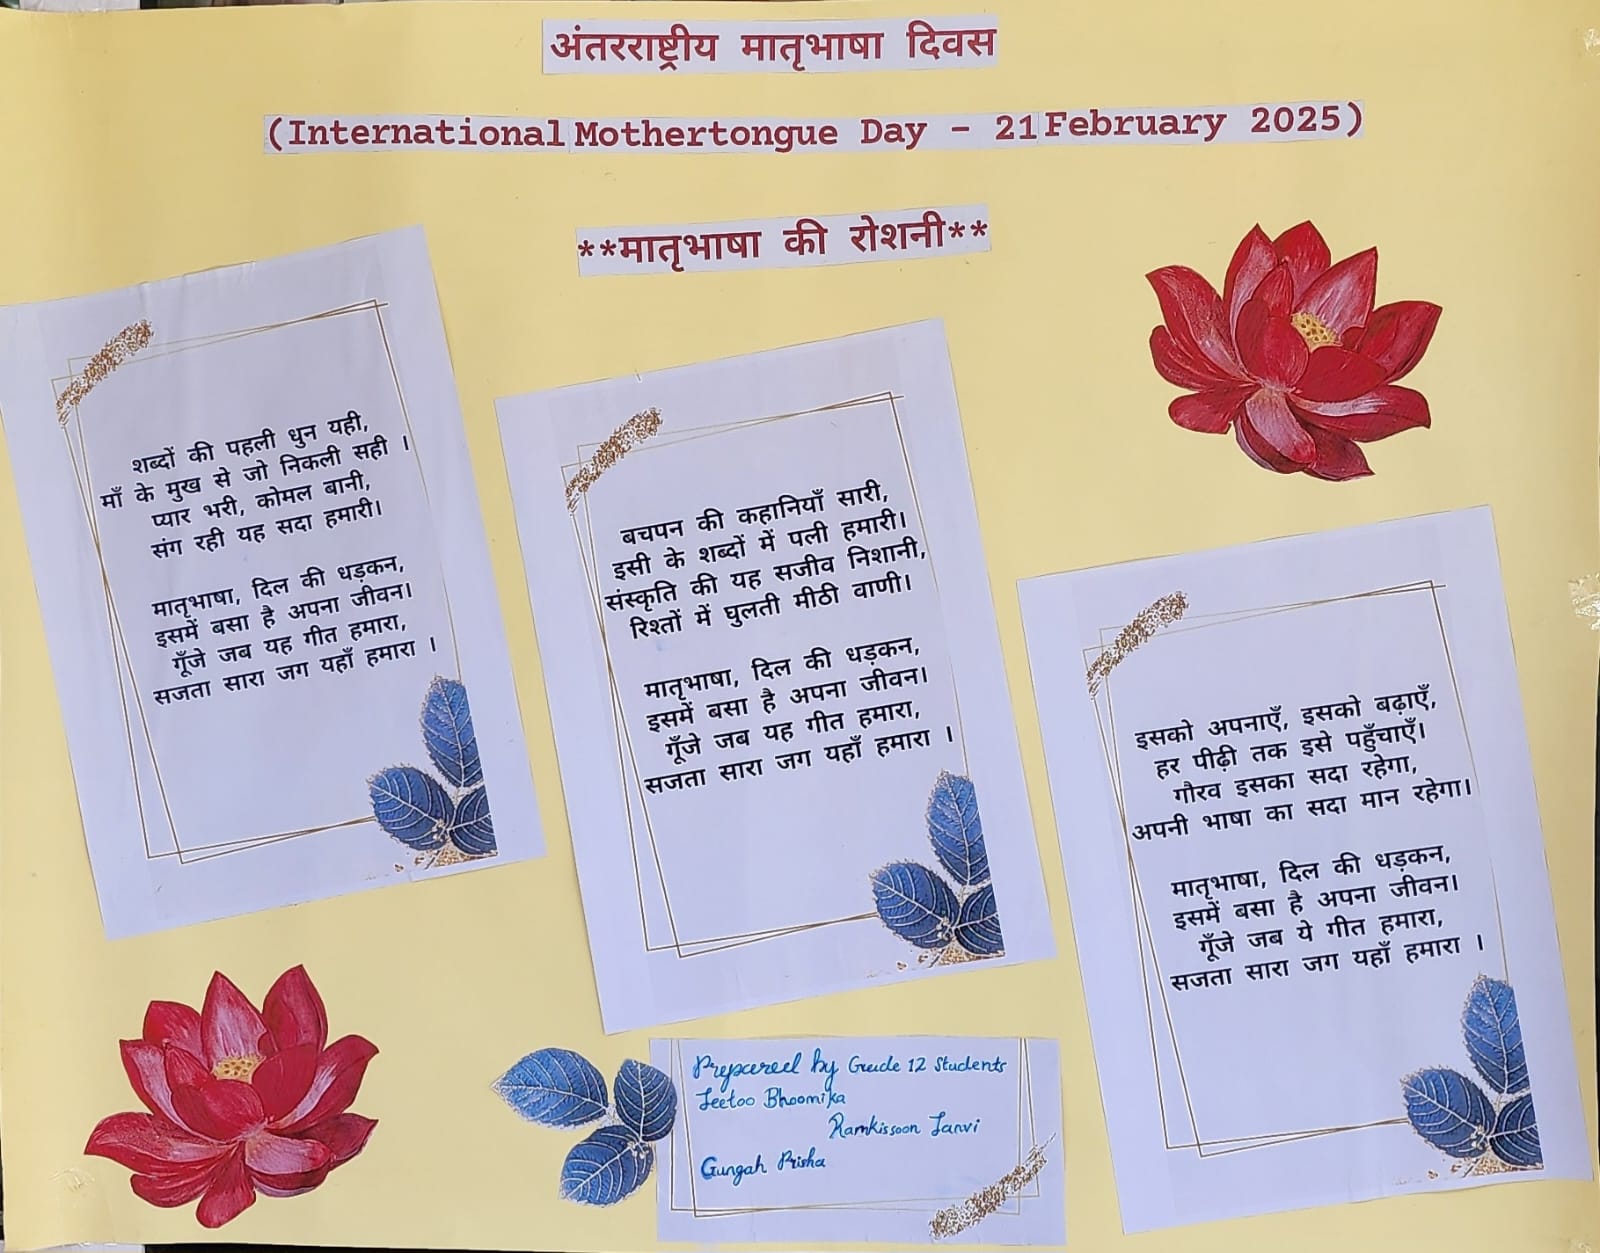 अंतरराष्ट्रीय मातृभाषा दिवस
(International Mothertongue Day - 21 February 2025)
**मातृभाषा की रोशनी**
शब्दों की पहली धुन यही,
माँ के मुख से जो निकली सही ।
प्यार भरी, कोमल बानी,
संग रही यह सदा हमारी।
मातृभाषा, दिल की धड़कन,
इसमें बसा है अपना जीवन।
गूँजे जब यह गीत हमारा,
सजता सारा जग यहाँ हमारा ।
बचपन की कहानियाँ सारी,
इसी के शब्दों में पली हमारी।
संस्कृति की यह सजीव निशानी,
रिश्तों में घुलती मीठी वाणी।
मातृभाषा, दिल की धड़कन,
इसमें बसा है अपना जीवन।
गूँजे जब यह गीत हमारा,
सजता सारा जग यहाँ हमारा ।
इसको अपनाएँ, इसको बढ़ाएँ,
हर पीढ़ी तक इसे पहुँचाएँ।
गौरव इसका सदा रहेगा,
अपनी भाषा का सदा मान रहेगा।
मातृभाषा, दिल की धड़कन,
इसमें बसा है अपना जीवन।
गूँजे जब ये गीत हमारा,
सजता सारा जग यहाँ हमारा ।
Prepared by Grade 12 Students
Jeetoo Bhoomika
Ramkissoon Janvi
Gungah Prisha